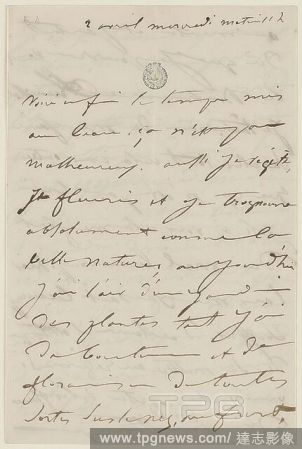 2 avril mercredi matin 11 h
Voici enfin le temps mis
au beau, ça n'est pas
malheureux. aussi je végète,
je fleuris et je
absolument comme la
belle nature, aujourd'hui
j'ai l'air d'un
des plantes tant j'ai
de boutons et de
floraison de toutes
sortes sur le nez, au front,
TPG
www.tpgnews.com/達志影像